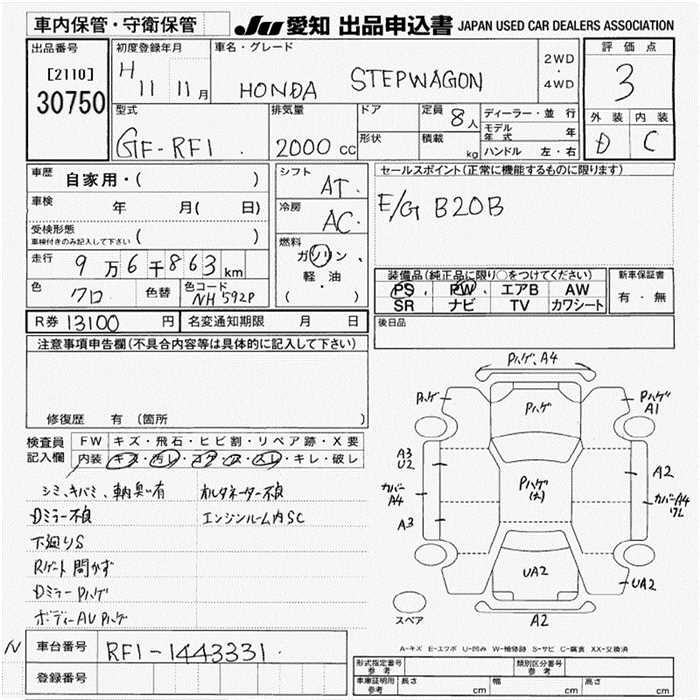 車内保管・守衛保管
JU 愛知 出品申込書 JAPAN USED CAR DEALERS ASSOCIATION
出品番号
[2110]
30750
初度登録年月
H 11 11月
車名・グレード
HONDA STEPWAGON
2WD
・
4WD
評価点
3
外装 内装
D C
型式
GF-RF1
排気量
2000 cc
ドア
形状
定員 8人
積載 kg
ディーラー・並行
モデル年式 年
ハンドル 左・右
車歴 自家用・( )
車検 年 月( 日)
受検形態
車検付きのみ記入して下さい ( )
走行 9万6千863km
色 クロ 色替 色コード NH592P
シフト AT
冷房 AC
燃料
ガソリン、
軽・油
( )
セールスポイント(正常に機能するものに限ります)
E/G B20B
装備品(純正品に限り○をつけてください)
PS PW エアB AW
SR ナビ TV カワシート
新車保証書
有・無
R券 13100 円 名変通知期限 月 日
後日品
注意事項申告欄(不具合内容等は具体的に記入して下さい)
修復歴 有 (箇所 )
検査員
記入欄
FW キズ・飛石・ヒビ割・リペア跡・X要
内装 キズ・汚レ・コゲ・アス・スレ・キレ・破レ
シミ、キバミ、車内臭い有
オルタネーター不良
Dミラー不良
エンジンルーム内SC
下廻りS
Rゲート開かず
Dミラー Pハゲ
ボディーAU Pハゲ
Pハゲ、A4
Pハゲ
Pハゲ
Pハゲ
A1
A3
U2
Pハゲ
(大)
A2
カバー
A4
カバーA4
ワレ
A3
UA2
UA2
スペア
A2
A-キズ E-エクボ U-凹み W-補修跡 S-サビ C-腐食 XX-交換済
N
車台番号 RF1-1443331
登録番号
形式指定番号
参考
類別区分番号
参考
車庫証明用
参考
長さ cm
幅 cm
高さ cm